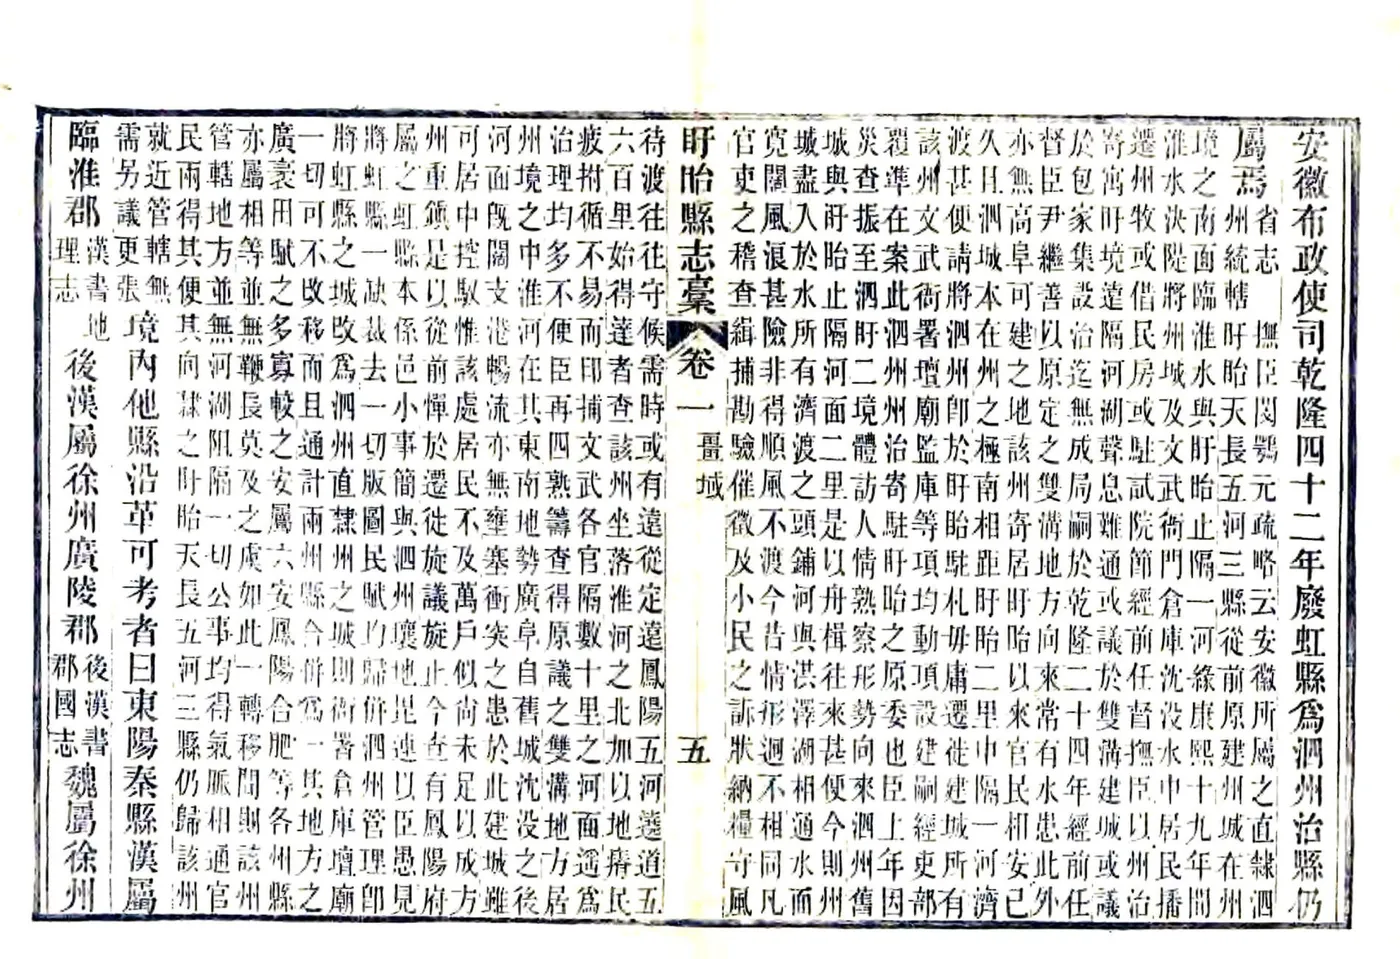 安徽布政使司乾隆四十二年廢虹縣爲泗州治縣仍
屬焉
省志　撫臣閔鶚元疏略云安徽所屬之直隸泗
州統轄盱眙天長五河三縣從前原建州城在州
境之南面臨淮水與盱眙止隔一河緣康熙十九年間
淮水決隄將州城及文武衙門倉庫沈没水中居民播
遷州牧或借民房或駐試院節經前任督撫臣以州治
寄寓盱境遠隔河湖聲息難通或議於雙溝建城或議
於包家集設治迄無成局嗣於乾隆二十四年經前任
督臣尹繼善以原定之雙溝地方向來常有水患此外
亦無高阜可建之地該州寄居盱眙以來官民相安已
久且泗城本在州之極南相距盱眙二里中隔一河濟
渡甚便請將泗州卽於盱眙駐札毋庸遷徙建城所有
該州文武衙署壇廟監庫等項均動項設建嗣經吏部
覆準在案此泗州州治寄駐盱眙之原委也臣上年因
災查振至泗盱二境體訪人情熟察形勢向來泗州舊
城與盱眙止隔河面二里是以舟楫往來甚便今則州
城盡入於水所有濟渡之頭鋪河與洪澤湖相通水面
寬闊風浪甚險非得順風不渡今昔情形迥不相同凡
官吏之稽查緝捕勘驗催徵及小民之訴狀納糧守風
盱眙縣志稾 卷一 畺域 五
待渡往往守候需時或有遠從定遠鳳陽五河遶道五
六百里始得達者查該州坐落淮河之北加以地瘠民
疲拊循不易而印捕文武各官隔數十里之河面遥爲
治理均多不便臣再四熟籌查得原議之雙溝地方居
州境之中淮河在其東南地勢廣阜自舊城沈没之後
河面旣闊支港暢流亦無壅塞衝突之患於此建城雖
可居中控馭惟該處居民不及萬戶似尚未足以成方
州重鎭是以從前憚於遷徙旋議旋止今查有鳳陽府
屬之虹縣本係邑小事簡與泗州壤地毘連以臣愚見
將虹縣一缺裁去一切版圖民賦均歸併泗州管理卽
將虹縣之城改爲泗州直隸州之城則衙署倉庫壇廟
一切可不改移而且通計兩州縣合併爲一其地方之
廣袤田賦之多寡較之安屬六安鳳陽合肥等各州縣
亦屬相等並無鞭長莫及之虞如此一轉移間則該州
管轄地方並無河湖阻隔一切公事均得氣脈相通官
民兩得其便其向隸之盱眙天長五河三縣仍歸該州
就近管轄無
需另議更張
境内他縣沿革可考者曰東陽秦縣漢屬
臨淮郡漢書地理志後漢屬徐州廣陵郡後漢書郡國志魏屬徐州